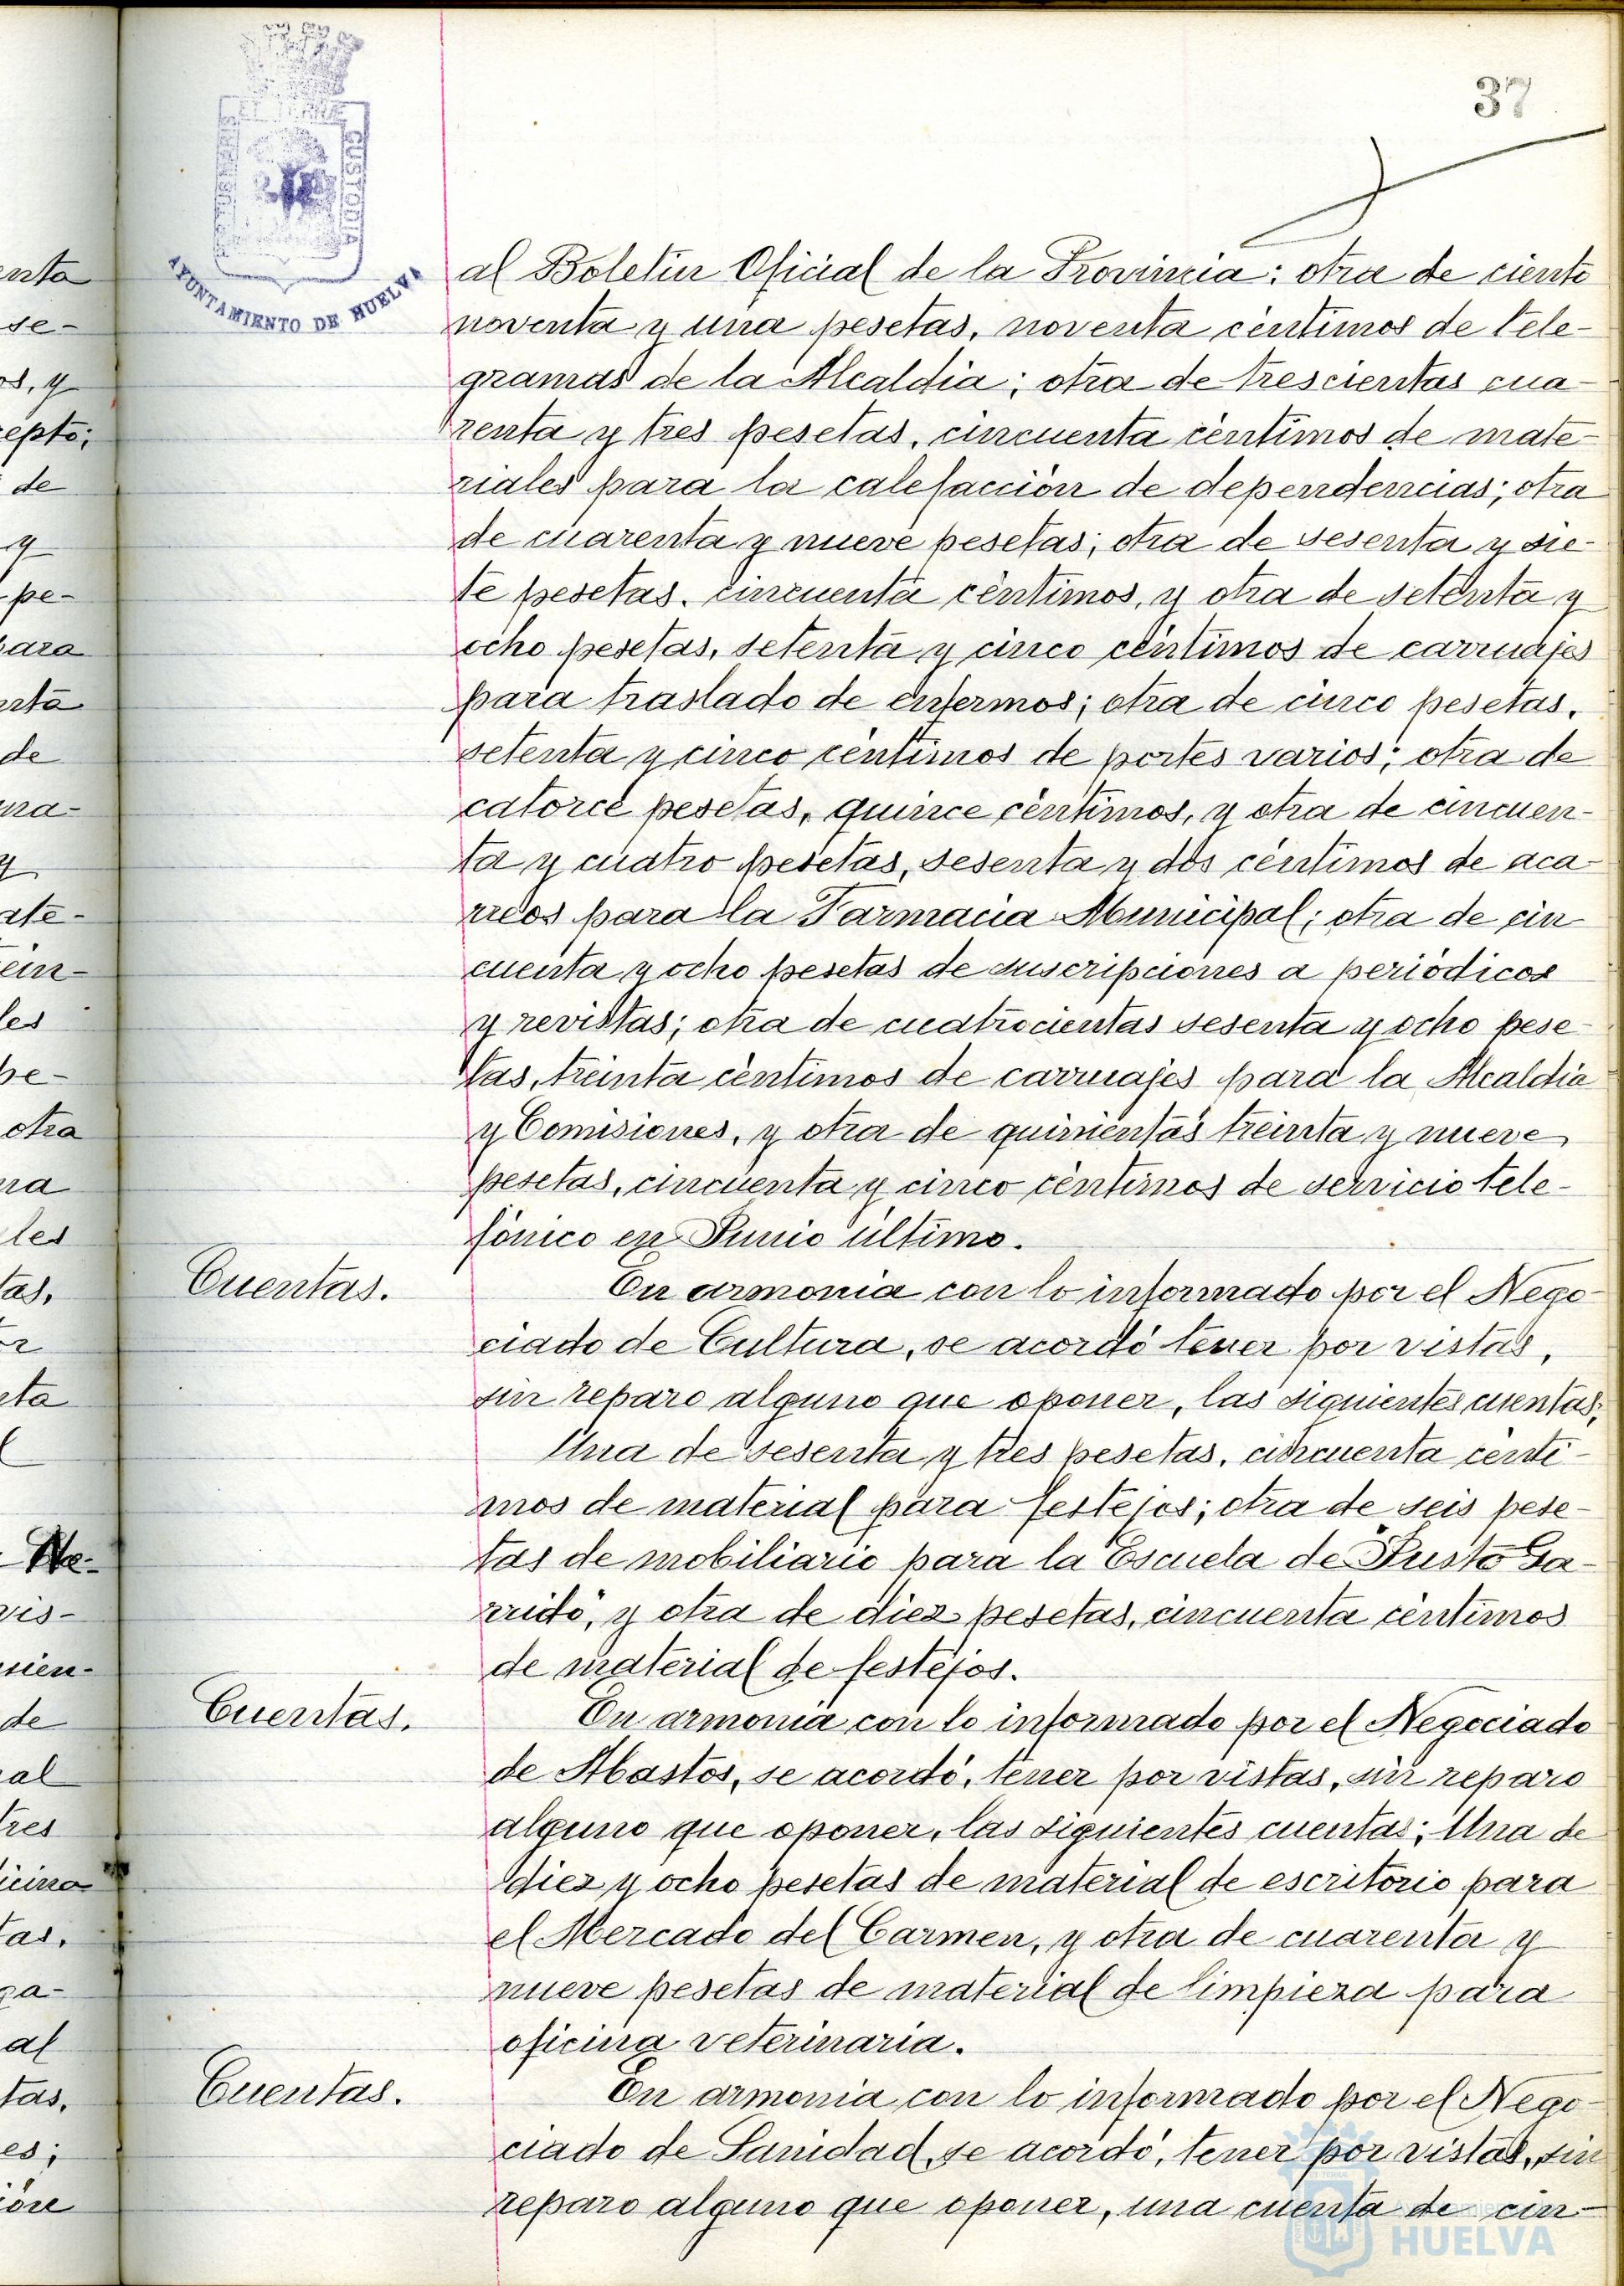 37
AYUNTAMIENTO DE HUELVA
CUSTODIA
al Boletin Oficial de la Provincia: otra de ciento
noventa y una pesetas, noventa céntimos de tele-
gramas de la Alcaldia; otra de trescientas cua-
renta y tres pesetas, cincuenta céntimos de mate-
riales para la calefacción de dependencias; otra
de cuarenta y nueve pesetas; otra de sesenta y sie-
te pesetas, cincuenta céntimos, y otra de setenta y
ocho pesetas, setenta y cinco céntimos de carruajes
para traslado de enfermos; otra de cinco pesetas,
setenta y cinco céntimos de portes varios; otra de
catorce pesetas, quince céntimos, y otra de cincuen-
ta y cuatro pesetas, sesenta y dos céntimos de aca-
rreos para la Farmacia Municipal; otra de cin-
cuenta y ocho pesetas de suscripciones a periódicos
y revistas; otra de cuatrocientas sesenta y ocho pese-
tas, treinta céntimos de carruajes para la Alcaldia
y Comisiones, y otra de quinientas treinta y nueve
pesetas, cincuenta y cinco céntimos de servicio tele-
fónico en Junio último.
Cuentas.
En armonia con lo informado por el Nego-
ciado de Cultura, se acordó tener por vistas,
sin reparo alguno que oponer, las siguientes cuentas:
Una de sesenta y tres pesetas, cincuenta cénti-
mos de material para festejos; otra de seis pese-
tas de mobiliario para la Escuela de "Justo Ga-
rrido", y otra de diez pesetas, cincuenta céntimos
de material de festejos.
Cuentas.
En armonia con lo informado por el Negociado
de Abastos, se acordó, tener por vistas, sin reparo
alguno que oponer, las siguientes cuentas: Una de
diez y ocho pesetas de material de escritorio para
el Mercado del Carmen, y otra de cuarenta y
nueve pesetas de material de limpieza para
oficina veterinaria.
Cuentas.
En armonia con lo informado por el Nego-
ciado de Sanidad, se acordó, tener por vistas, sin
reparo alguno que oponer, una cuenta de cin-
HUELVA